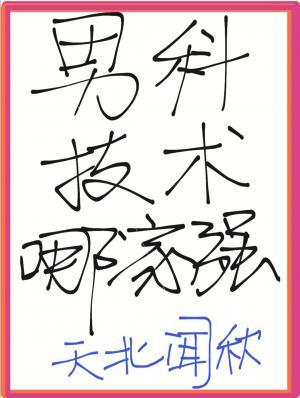 男科
技术
哪家强
天北闻秋